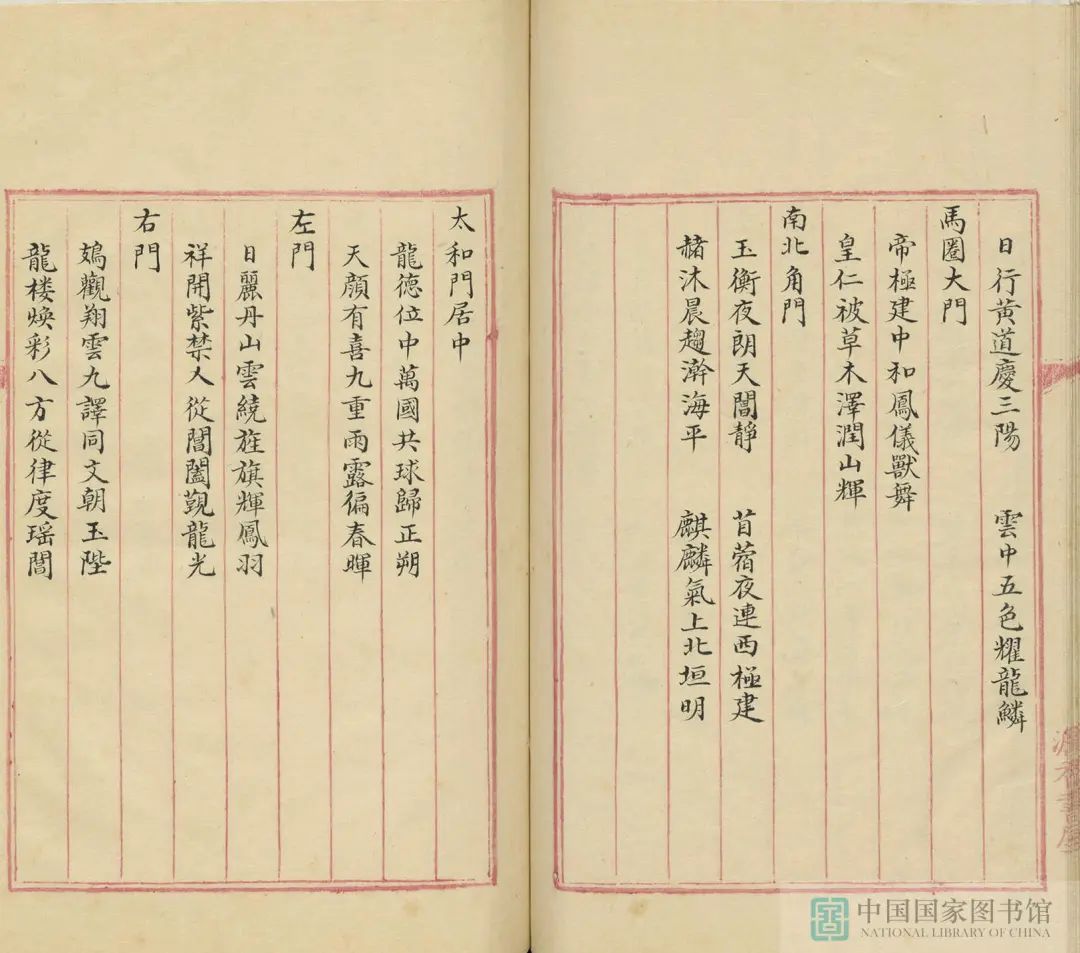 日行黃道慶三陽 雲中五色耀龍鱗
馬圈大門
帝極建中和鳳儀獸舞
皇仁被草木澤潤山輝
南北角門
玉衡夜朗天閶靜 苜蓿夜連西極建
赭沐晨趨瀚海平 麒麟氣上北垣明
太和門居中
龍德位中萬國共球歸正朔
天顏有喜九重雨露徧春暉
左門
日麗丹山雲繞旌旗輝鳳羽
祥開紫禁人從閶闔覲龍光
右門
鳷觀翔雲九譯同文朝玉陛
龍楼煥彩八方從律度瑶閶
中国国家图书馆
NATIONAL LIBRARY OF CHINA